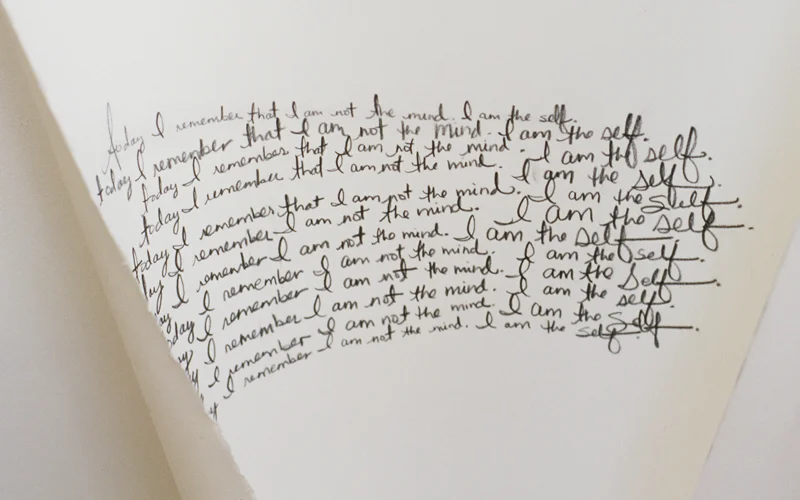 today I remember that I am not the mind. I am the self.
today I remember that I am not the mind. I am the self.
today I remember that I am not the mind. I am the self.
today I remember that I am not the mind. I am the self.
today I remember that I am not the mind. I am the self.
day I remember I am not the mind. I am the self.
I remember I am not the mind. I am the self.
day I remember I am not the mind. I am the self.
I remember I am not the mind. I am the self.
I remember I am not the mind. I am the self.
I remember I am not the mind. I am the self.
y I remember I am not the mind. I am the self.